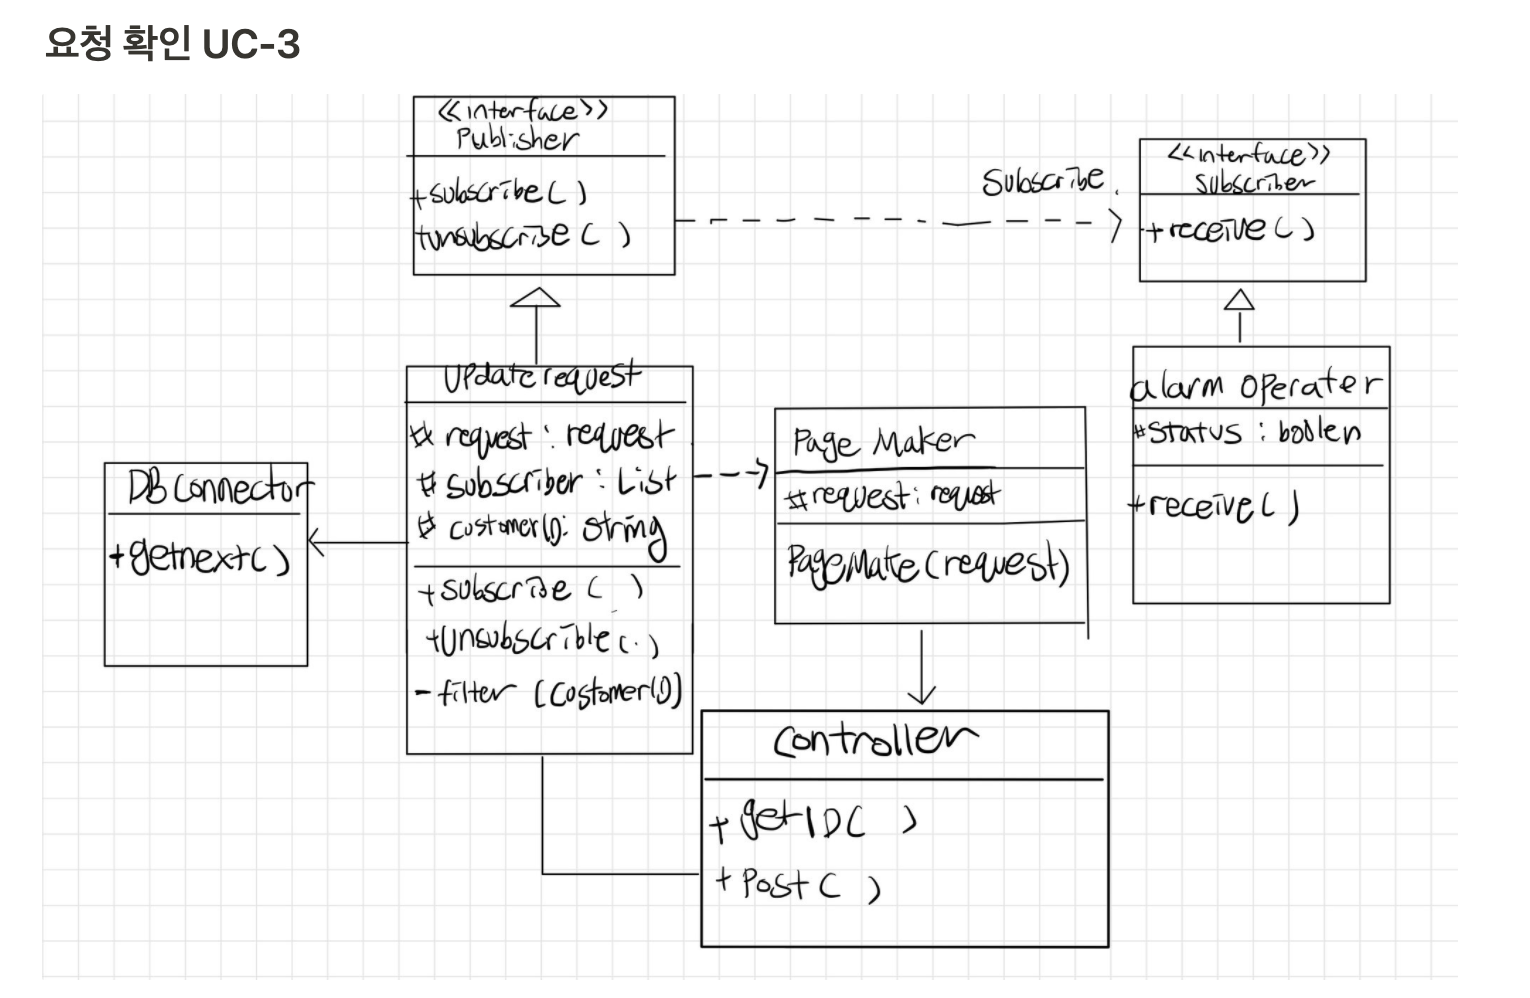 요청 확인 UC-3
<<interface>>
Publisher
+subscribe( )
+unsubscribe( )
Subscribe.
<<interface>>
Subscriber
+receive( )
Update request
# request : request
# subscriber : List
# customerID: string
+subscribe ( )
+Unsubscrible( )
- filter (CostomerID)
DB Connector
+getnext( )
Page Maker
#request: request
PageMake(request)
alarm operater
#Status : boolen
+receive( )
Controller
+ getID( )
+ Post( )